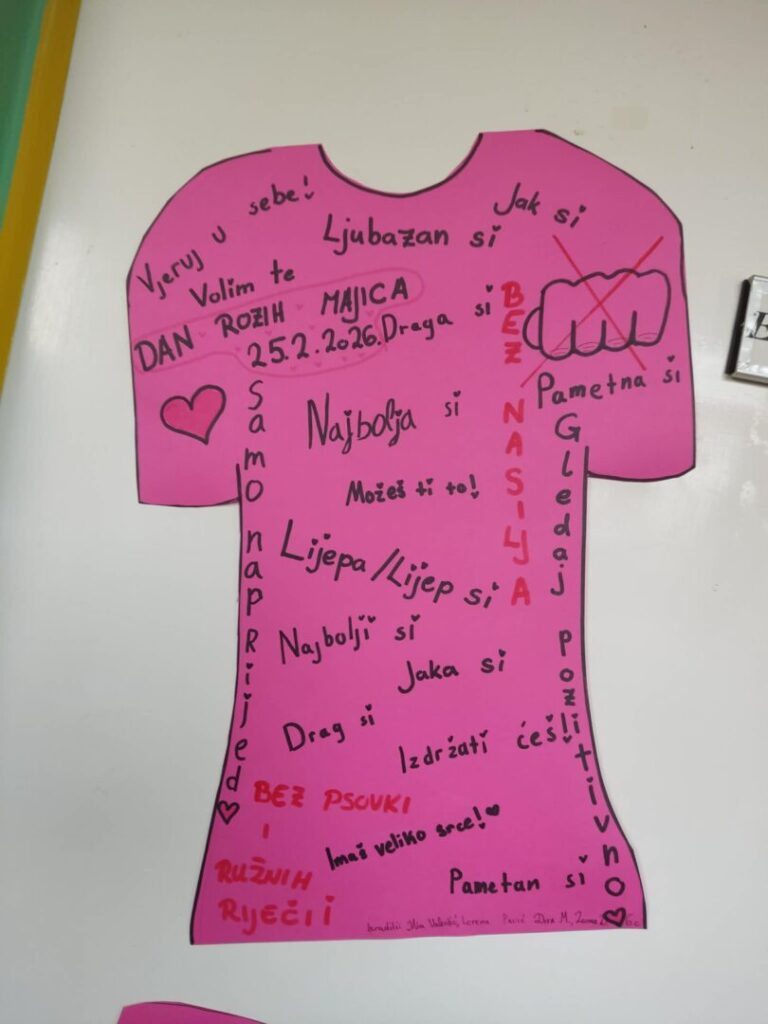 Vjeruj u sebe!
Ljubazan si
Jak si
Volim te
DAN ROZIH MAJICA
25.2.2026.
Draga si
BEZ NASILJA
Pametna si
Samo naprijed
Najbolja si
Gledaj pozitivno
Možeš ti to!
Lijepa/Lijep si
Najbolji si
Jaka si
Drag si
Izdržati ćeš!
BEZ PSOVKI
I
RUŽNIH
RIJEČI!
Imaš veliko srce!
Pametan si
Lorena Dora M,
E